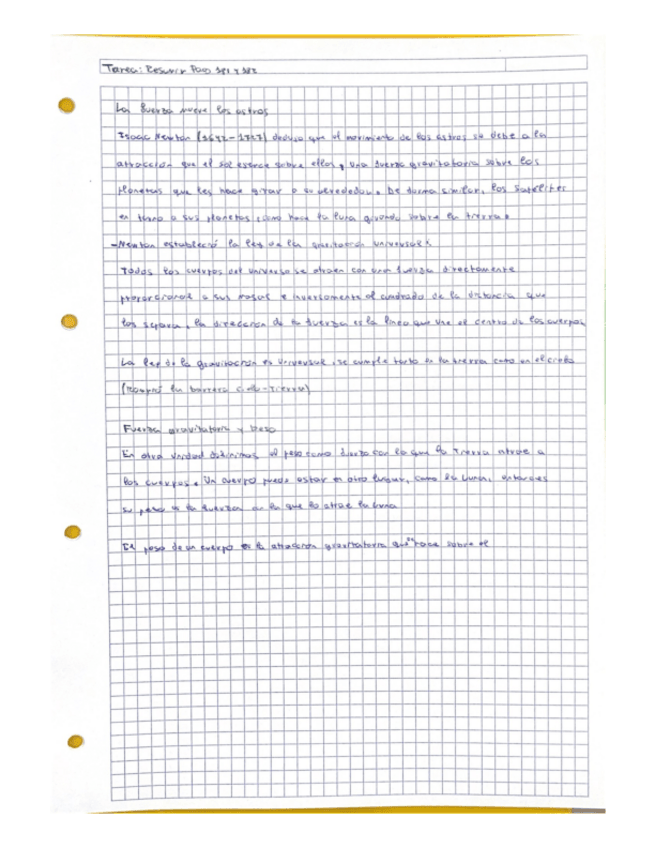 Tarea: Resumir Pag 181 y 182
La fuerza mueve los astros
Isaac Newton (1642-1727) dedujo que el movimiento de los astros se debe a la
atracción que el sol ejerce sobre ellos, una fuerza gravitatoria sobre los
planetas que les hace girar a su alrededor. De forma similar, los satélites
en torno a sus planetas, como hace la luna girando sobre la tierra.
-Newton estableció la ley de la gravitación universal:
Todos los cuerpos del universo se atraen con una fuerza directamente
proporcional a sus masas e inversamente al cuadrado de la distancia que
los separa, la dirección de la fuerza es la línea que une el centro de los cuerpos
La ley de la gravitación es universal, se cumple tanto en la tierra como en el cielo
(rompió la barrera cielo-Tierra)
Fuerza gravitatoria y peso
En otra unidad definimos el peso como fuerza con la que la Tierra atrae a
los cuerpos. Un cuerpo puede estar en otro lugar, como la Luna, entonces
su peso es la fuerza con la que lo atrae la luna
El peso de un cuerpo es la atracción gravitatoria que hace sobre el